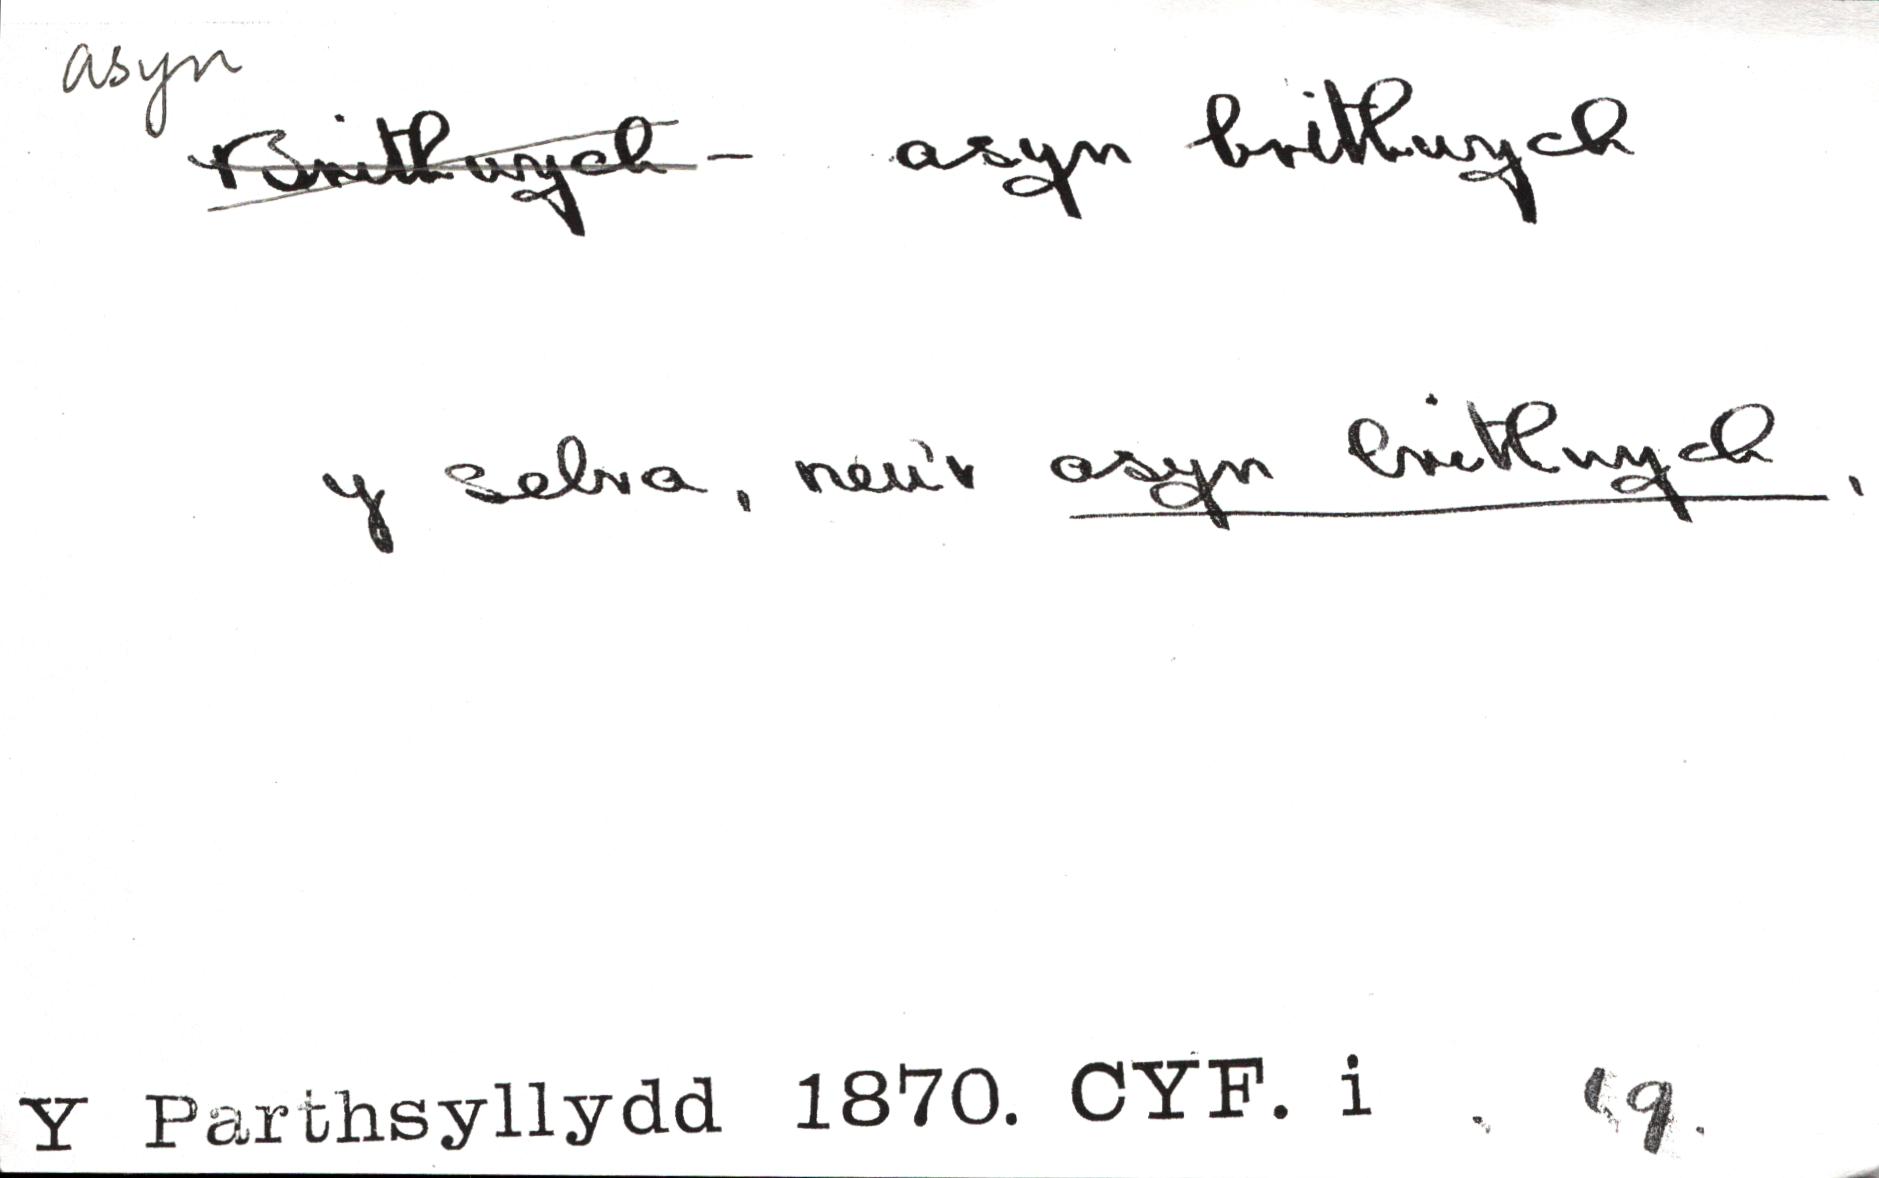 asyn
+Brithwych - asyn brithwych
y sebra, neu'r asyn brithwych,
Y Parthsyllydd 1870. CYF. i .